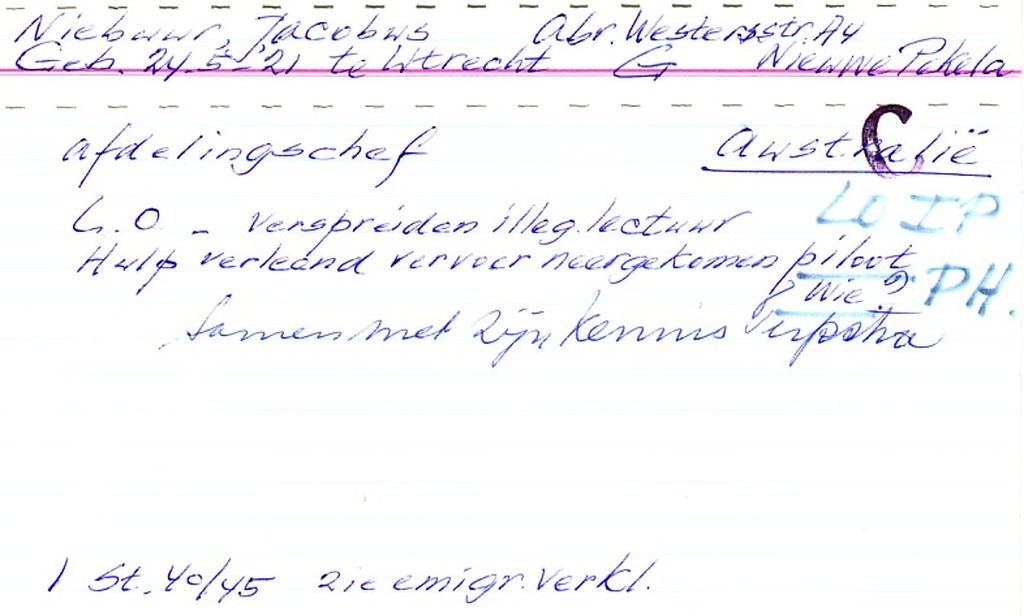 Niebuur, Jacobus Abr. Westersstr. A4
Geb. 24-5-'21 te Utrecht G Nieuwe Pekela
afdelingschef Australië C
L.O. - verspreiden illeg. lectuur LO IP
Hulp verleend vervoer neergekomen piloot
Wie? PH.
Samen met zijn kennis Terpstra
1 St. 40/45 zie emigr. verkl.